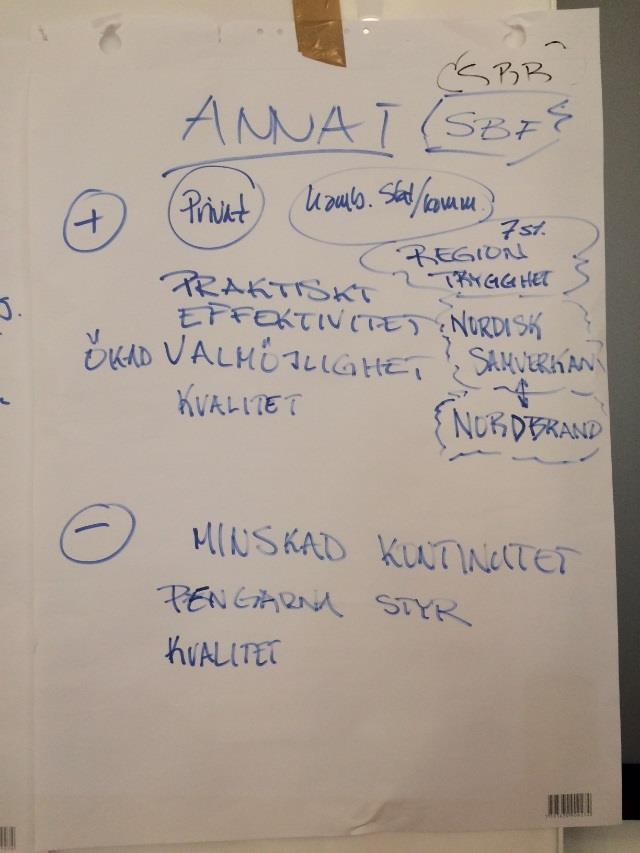 SBB
ANNAT SBF
+ Privat komb. Stat/komm.
7 st.
REGION
TRYGGHET
PRAKTISKT
EFFEKTIVITET
ÖKAD VALMÖJLIGHET
KVALITET
NORDISK
SAMVERKAN
NORDBRAND
- MINSKAD KONTINUITET
PENGARNA STYR
KVALITET